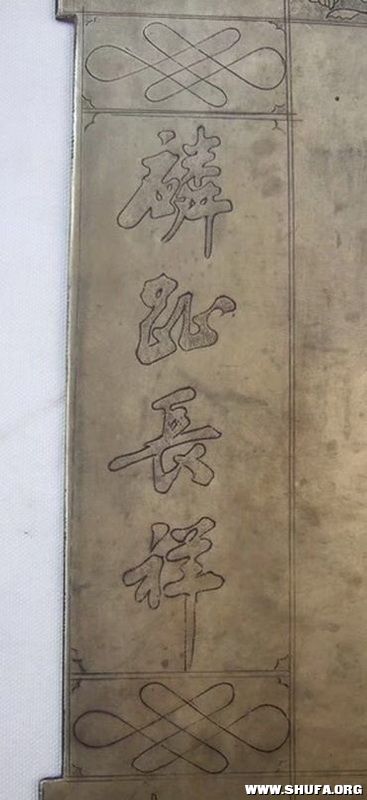 麟趾長祥
WWW.SHUFA.ORG